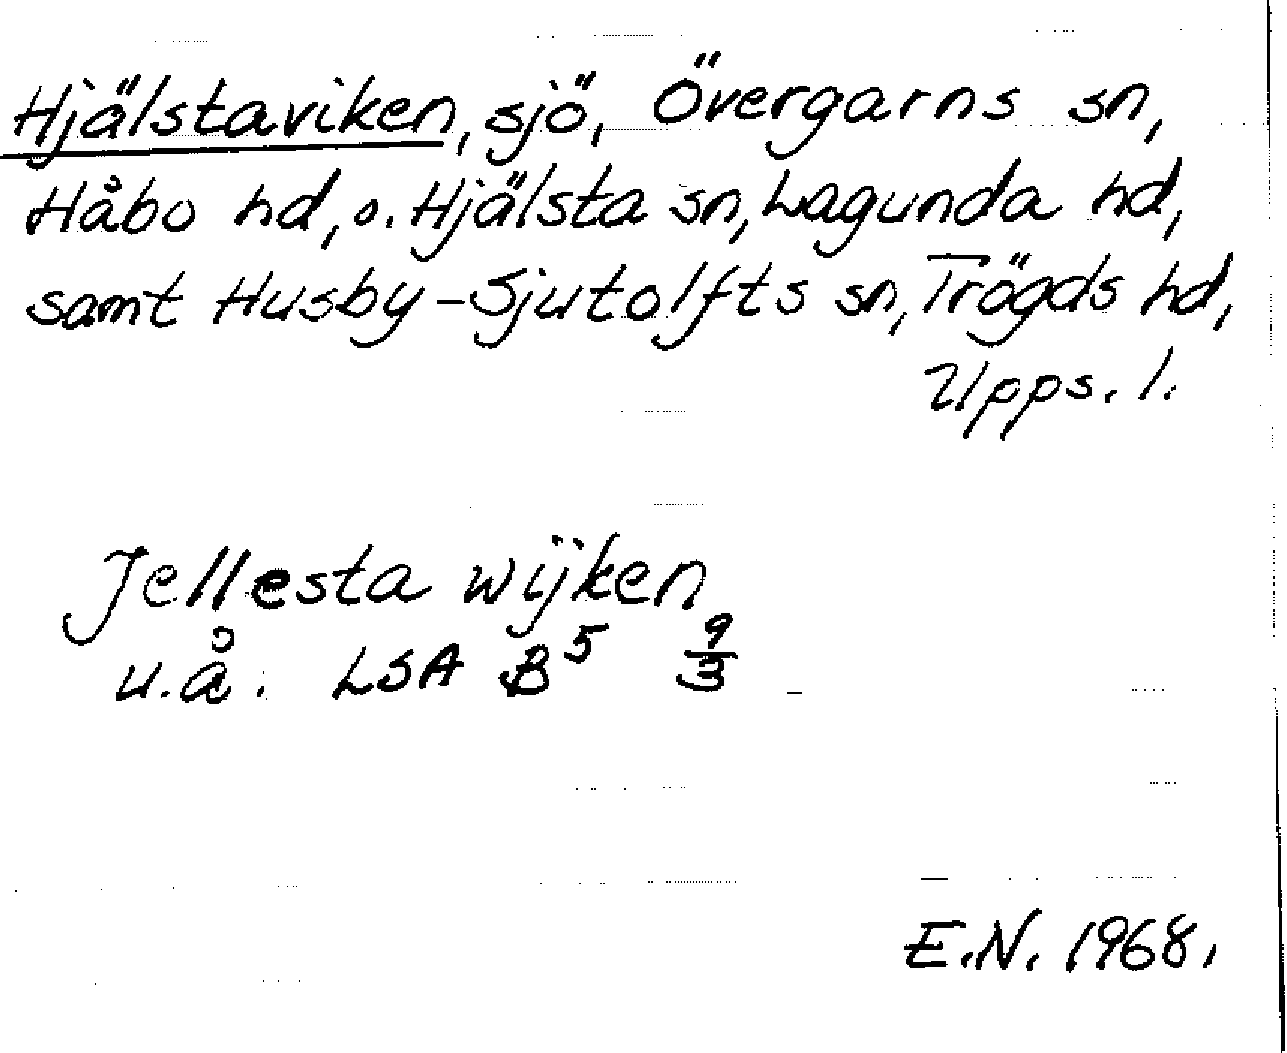 Hjälstaviken, sjö, Övergarns sn,
Håbo hd, o. Hjälsta sn, Lagunda hd,
samt Husby-Sjutolfts sn, Trögds hd,
Upps. l.
Jellesta wijken
u.å. LSA B⁵ 9/3
E.N. 1968.